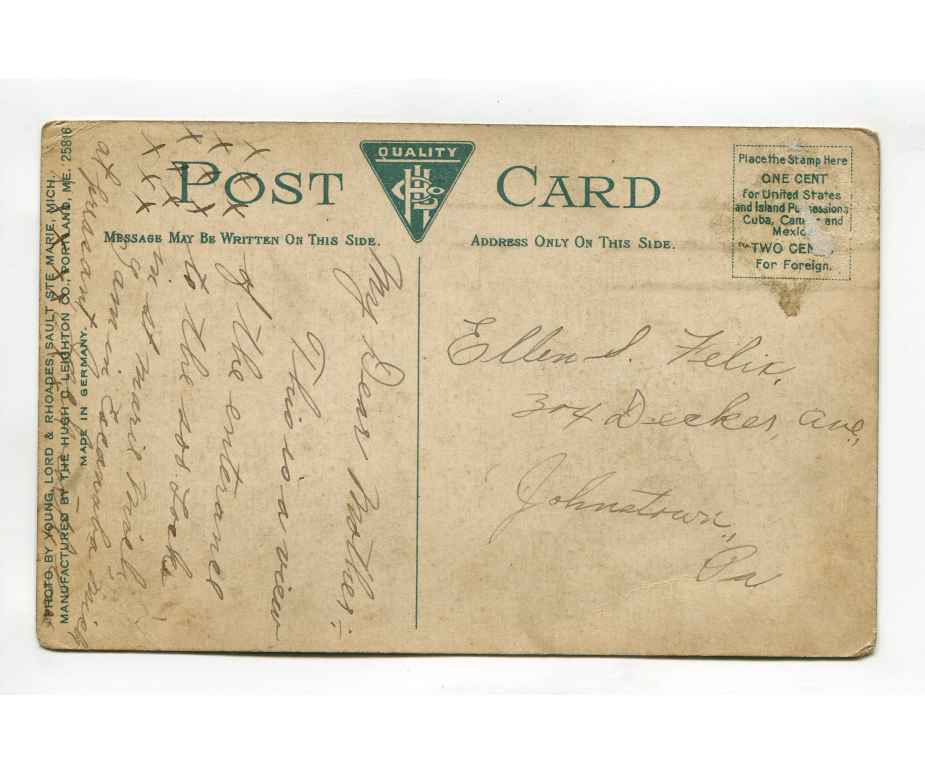 POST CARD
QUALITY
MESSAGE MAY BE WRITTEN ON THIS SIDE.
ADDRESS ONLY ON THIS SIDE.
Place the Stamp Here
ONE CENT
For United States
and Island Possessions
Cuba, Canada and
Mexico
TWO CENTS
For Foreign.
My Dear Mother:
This is a view
of the entrance
to the soo Lock
in st marie Mich,
I am in Escanaba Mich
at preseant
X X X
X X X
X X X
X X X
Ellen S. Felix,
304 Decker, Ave,
Johnstown,
Pa
PHOTO BY YOUNG, LORD & RHOADES, SAULT STE MARIE, MICH.
MANUFACTURED BY THE HUGH C. LEIGHTON CO., PORTLAND, ME. 25816
MADE IN GERMANY.